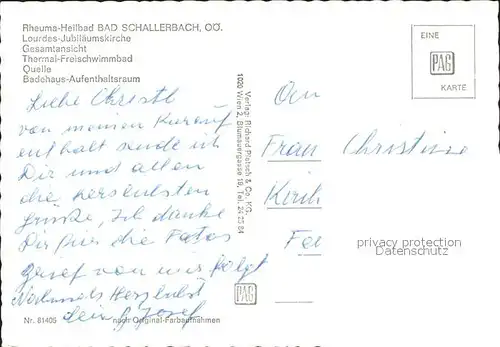 Rheuma-Heilbad BAD SCHALLERBACH, OÖ.
Lourdes-Jubiläumskirche
Gesamtansicht
Thermal-Freischwimmbad
Quelle
Badehaus-Aufenthaltsraum
Liebe Christl
von meinen Kurauf
enthalt sende ich
Dir und allen
die herzlichsten
Grüße, Ich danke
Dir für die Fotos
Brief von mir folgt
Nochmals Herzlichst
Dein Josef
Nr. 81405
nach Original-Farbaufnahmen
Verlag: Richard Pietsch & Co. KG.
1020 Wien 2, Blumauergasse 19, Tel. 24 25 84
PAG
EINE
PAG
KARTE
An
Frau Christine
Kirch
Fel
privacy protection
Datenschutz